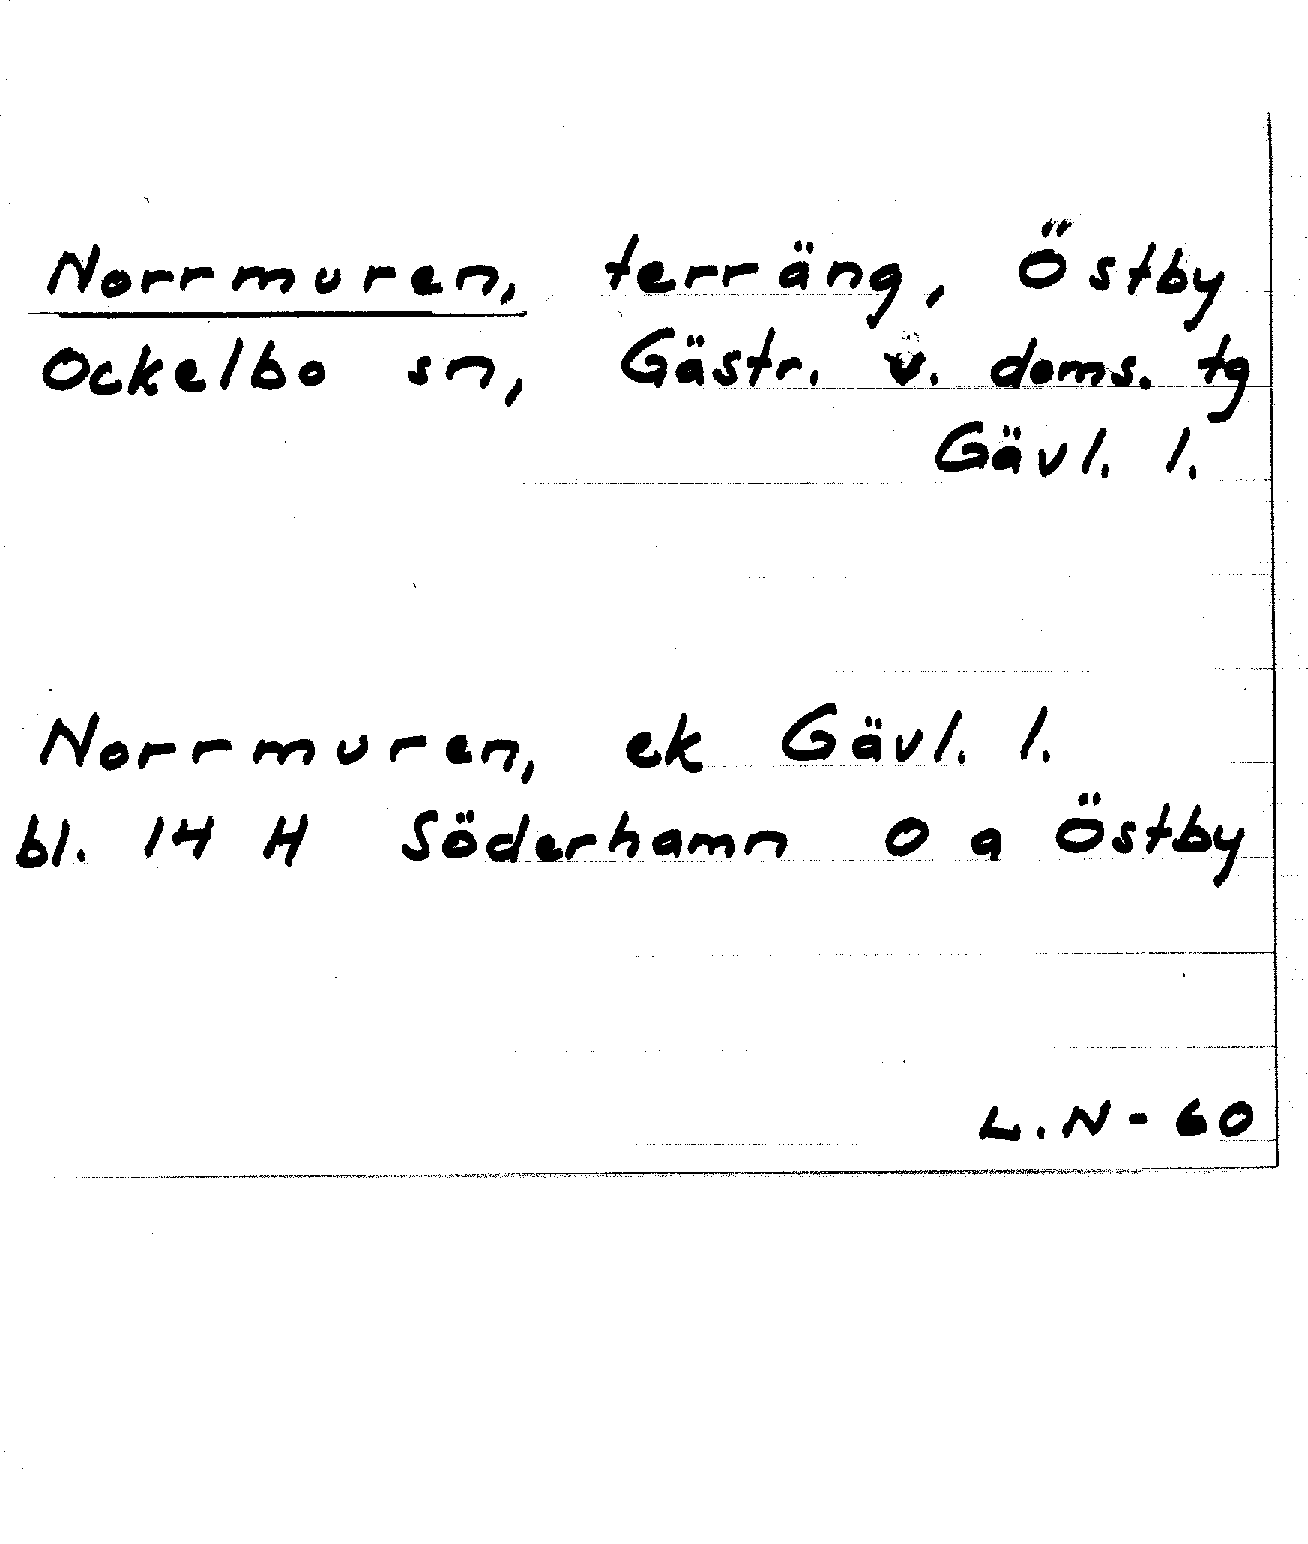 Norrmuren, terräng, Östby
Ockelbo sn, Gästr. v. doms. tg
Gävl. l.
Norrmuren, ek Gävl. l.
bl. 14 H Söderhamn O a Östby
L.N-60